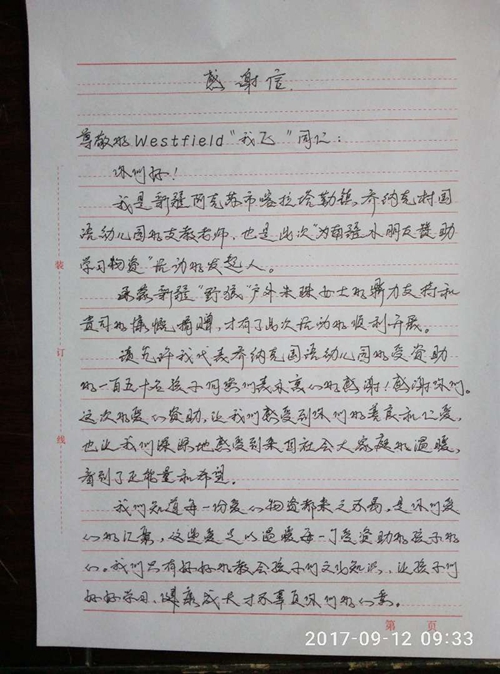 感谢信
尊敬的Westfield“我飞”同仁：
你们好！
我是新疆阿克苏市喀拉塔勒镇，乔纳克村国
语幼儿园的支教老师，也是此次“为南疆小朋友赞助
学习物资”活动的发起人。
承蒙新疆“野狼”户外朱珠女士的鼎力支持和
贵司的慷慨捐赠，才有了此次活动的顺利开展。
请允许我代表乔纳克国语幼儿园的受资助
的一百五十名孩子向你们表示衷心的感谢！感谢你们。
这次的爱心资助，让我们感受到你们的善良和仁爱，
也让我们深深地感受到来自社会大家庭的温暖，
看到了正能量和希望。
我们知道每一份爱心物资都来之不易，是你们爱
心的汇聚，这些爱足以温暖每一个受资助的孩子的
心。我们只有好好的教会孩子们文化知识，让孩子们
好好学习、健康成长才不辜负你们的心意。
装
订
线
第 页
2017-09-12 09:33